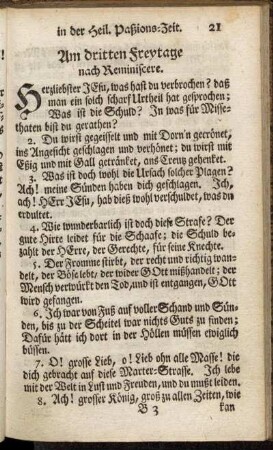 in der Heil. Paßions-Zeit. 21
Am dritten Freytage
nach Reminiscere.
Herzliebster JEsu, was hast du verbrochen? daß
man ein solch scharf Urtheil hat gesprochen;
Was ist die Schuld? In was für Misse-
thaten bist du gerathen?
2. Du wirst gegeisselt und mit Dorn'n gecrönet,
ins Angesicht geschlagen und verhönet; du wirst mit
Eßig und mit Gall getränket, ans Creuz gehenket.
3. Was ist doch wohl die Ursach solcher Plagen?
Ach! meine Sünden haben dich geschlagen. Ich,
ach! HErr JEsu, hab dieß wohl verschuldet, was du
erdultet.
4. Wie wunderbarlich ist doch diese Strafe? Der
gute Hirte leidet für die Schaafe; die Schuld be-
zahlt der HErre, der Gerechte, für seine Knechte.
5. Der Fromme stirbt, der recht und richtig wan-
delt, der Böse lebt, der wider GOtt mißhandelt; der
Mensch verwürkt den Tod, und ist entgangen, GOtt
wird gefangen.
6. Ich war von Fuß auf voller Schand und Sün-
den, bis zu der Scheitel war nichts Guts zu finden;
Dafür hätt ich dort in der Höllen müssen ewiglich
büssen.
7. O! grosse Lieb, o! Lieb ohn alle Masse! die
dich gebracht auf diese Marter-Strasse. Ich lebe
mit der Welt in Lust und Freuden, und du mußt leiden.
8. Ach! grosser König, groß zu allen Zeiten, wie
B 3 kan